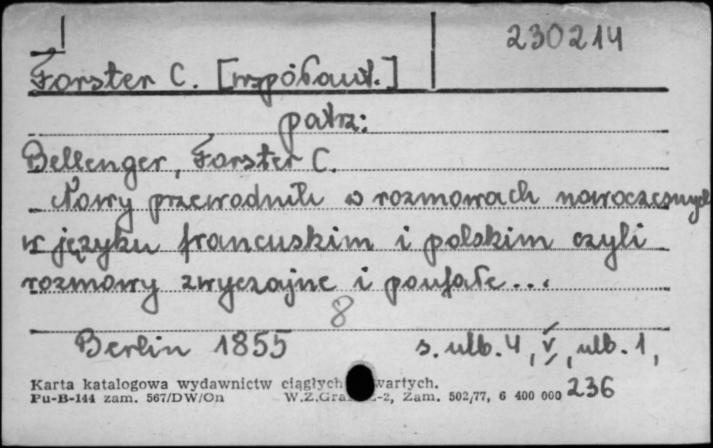 230214
Forster C. [współaut.]
patrz:
Bellenger, Forster C.
Nowy przewodnik w rozmowach nowoczesnych
w języku francuskim i polskim czyli
rozmowy zwyczajne i poufałe...
8
Berlin 1855 s. ulb. 4, V, ulb. 1,
236
Karta katalogowa wydawnictw ciągłych wartych.
Pu-B-144 zam. 567/DW/On W.Z.Graf. -2, Zam. 502/77, 6 400 000